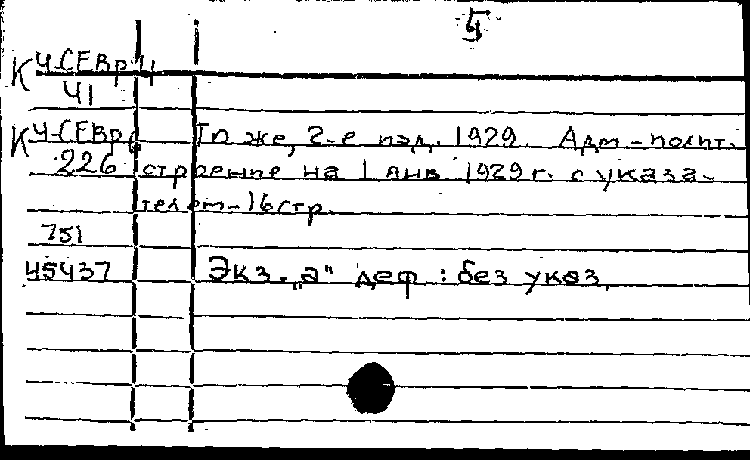 5
К Ч-СЕВр 4
41
К Ч-СЕВр 6 То же, 2-е изд. 1929. Адм-полит.
226 строение на 1 янв. 1929 г. с указа-
телем-16 стр.
751
45437 Экз. „а" деф: без указ.